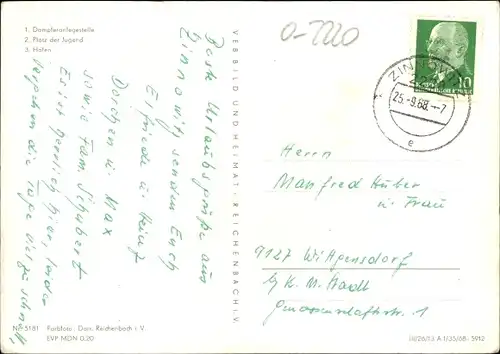 1. Dampferanlegestelle
2. Platz der Jugend
3. Hafen
O-2220
Beste Urlaubsgrüße aus
Zinnowitz senden Euch
Elfriede u. Heinz
Dorchen u. Max
sowie Fam. Schubert
Es ist herrlich hier, leider
vergehen die Tage viel zu schnell
VEB BILD UND HEIMAT · REICHENBACH i. V.
ZINNOWITZ
2238
25.-9.68.--7
e
10
Herrn
Manfred Huber
u. Frau
9127 Wittgensdorf
b/ K. M. Stadt
Genossenschaftsstr. 1
Nr. 5181 Farbfoto: Darr, Reichenbach i. V.
EVP MDN 0,20
III/26/13 A 1/35/68 · 5912